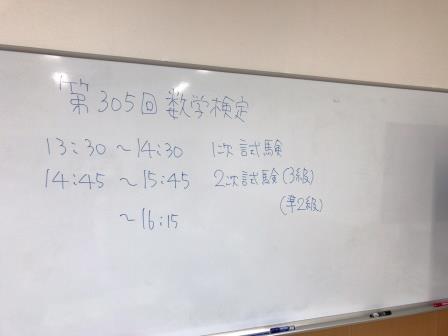 第305回 数学検定
13:30 ～14:30 1次試験
14:45 ～15:45 2次試験(3級)
～16:15 (準2級)